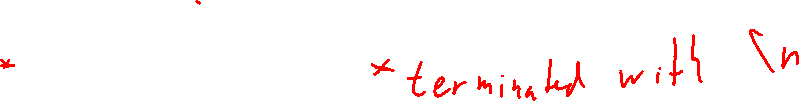 * *terminated with \n